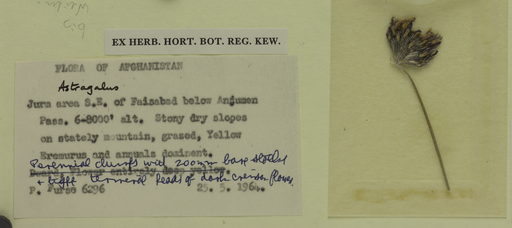 EX HERB. HORT. BOT. REG. KEW.
FLORA OF AFGHANISTAN
Astragalus
Jurm area S.E. of Faizabad below Anjuman
Pass. 6-8000' alt. Stony dry slopes
on stately mountain, grazed, Yellow
Eremurus and annuals dominent.
Perennial clumps with 200mm bare stalks
Dwarf, flower entirely deep yellow.
+ tight terminal heads of dark crimson flower.
P. Furse 6296 25. 5. 1964.